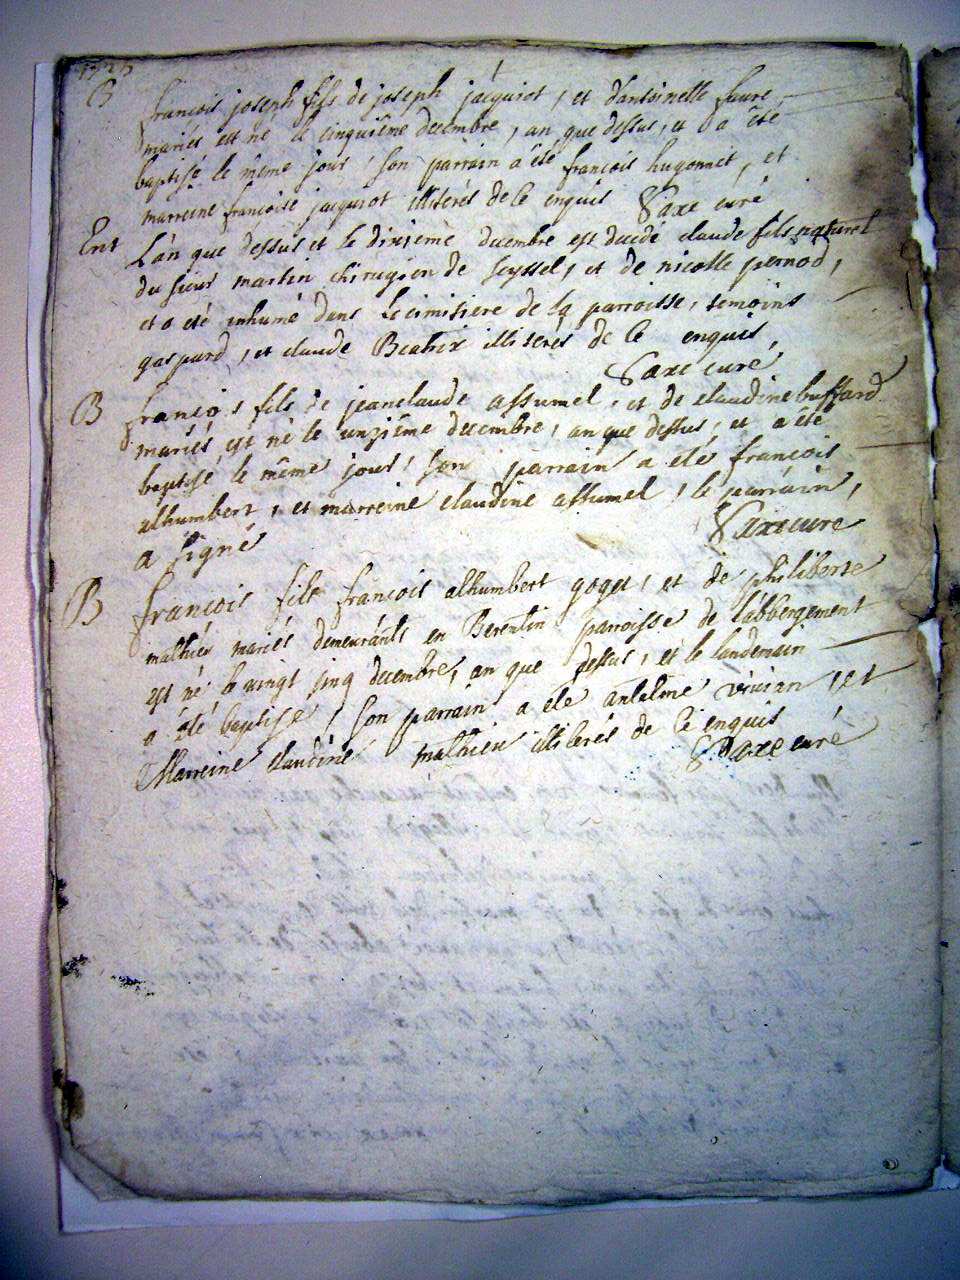 B francois joseph fils de joseph jacquiot, et dantoinelle favre,
mariés est né le cinquiême decembre, an que dessus, et a été
baptisé le même jour, son parrain a été françois hugonnet, et
marreine françoise jacquiot illiterés de ce enquis Saxe curé
Ent L'an que dessus et le dixiemé decembre est decedé claude fils naturel
du sieur martin chirugien de seyssel, et de nicolle pernod,
et a été inhumé dans le cimitiere de la parroisse, temoins
gaspard, et claude Beatrix illiterés de ce enquis,
Saxe curé
B françois fils de jeanclaude assumel, et de claudine buffard
mariés, est né le unziême decembre, an que dessus, et a été
baptisé le même jour, son parrain a été françois
alhumbert, et marreine claudine assumel, le parrain,
a signé Saxe curé
B françois fils françois alhumbert goget, et de philiberte
mathieu mariés demeurants en Berentin parroisse de l'abbergement
est né le vingt sinq decembre, an que dessus, et le landemain
a été baptisé, son parrain a été antelme vivian, et
Marreine claudine mathieu illiterés de ce enquis
Saxe curé